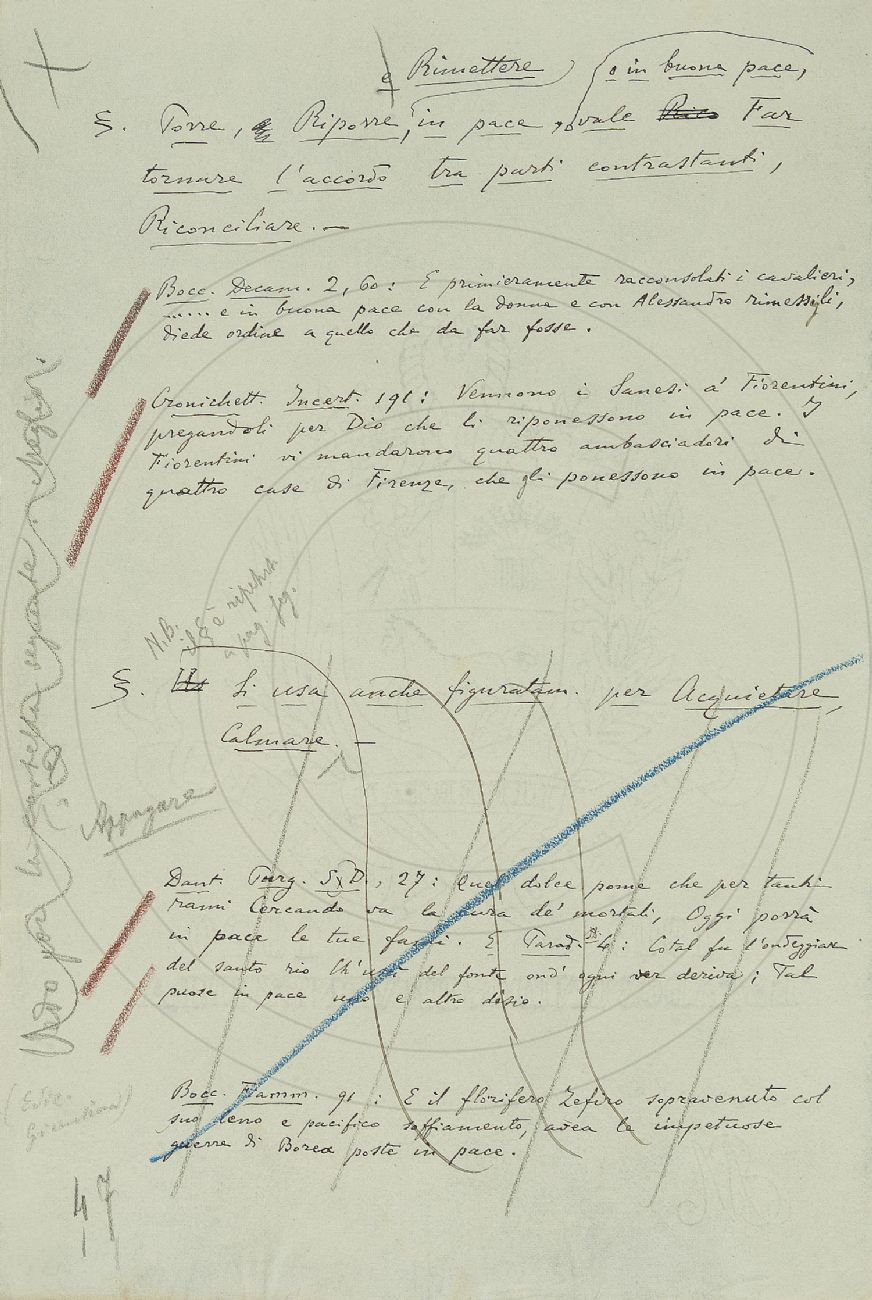 e Rimettere o in buona pace,
§. Porre, e Riporre, in pace, vale Rico Far
tornare l'accordo tra parti contrastanti,
Riconciliare. —
Bocc. Decam. 2, 60: E primieramente racconsolati i cavalieri,
...... e in buona pace con la donna e con Alessandro rimessigli,
diede ordine a quello che da far fosse.
Cronichett. Incert. 191: Vennono i Sanesi a' Fiorentini,
pregandoli per Dio che li riponessono in pace. I
Fiorentini vi mandarono quattro ambasciadori di
quattro case di Firenze, che gli ponessono in pace.
N.B.
il § è ripetuto
a pag. seg.
§. Si usa anche figuratam. per Acquietare,
Calmare. —
Appagare
Dant. Purg. 27: Quel dolce pome che per tanti
rami Cercando va la cura de' mortali, Oggi porrà
in pace le tue fami. E Parad. 4: Cotal fu l'ondeggiar
del santo rio Ch'uscì del fonte ond' ogni ver deriva; Tal
puose in pace uno e altro disio.
Bocc. Fiamm. 91: E il florifero Zefiro sopravenuto col
suo leno e pacifico soffiamento, avea le impetuose
guerre di Borea poste in pace.
Vedo poi la cartella seguente, è meglio.
47